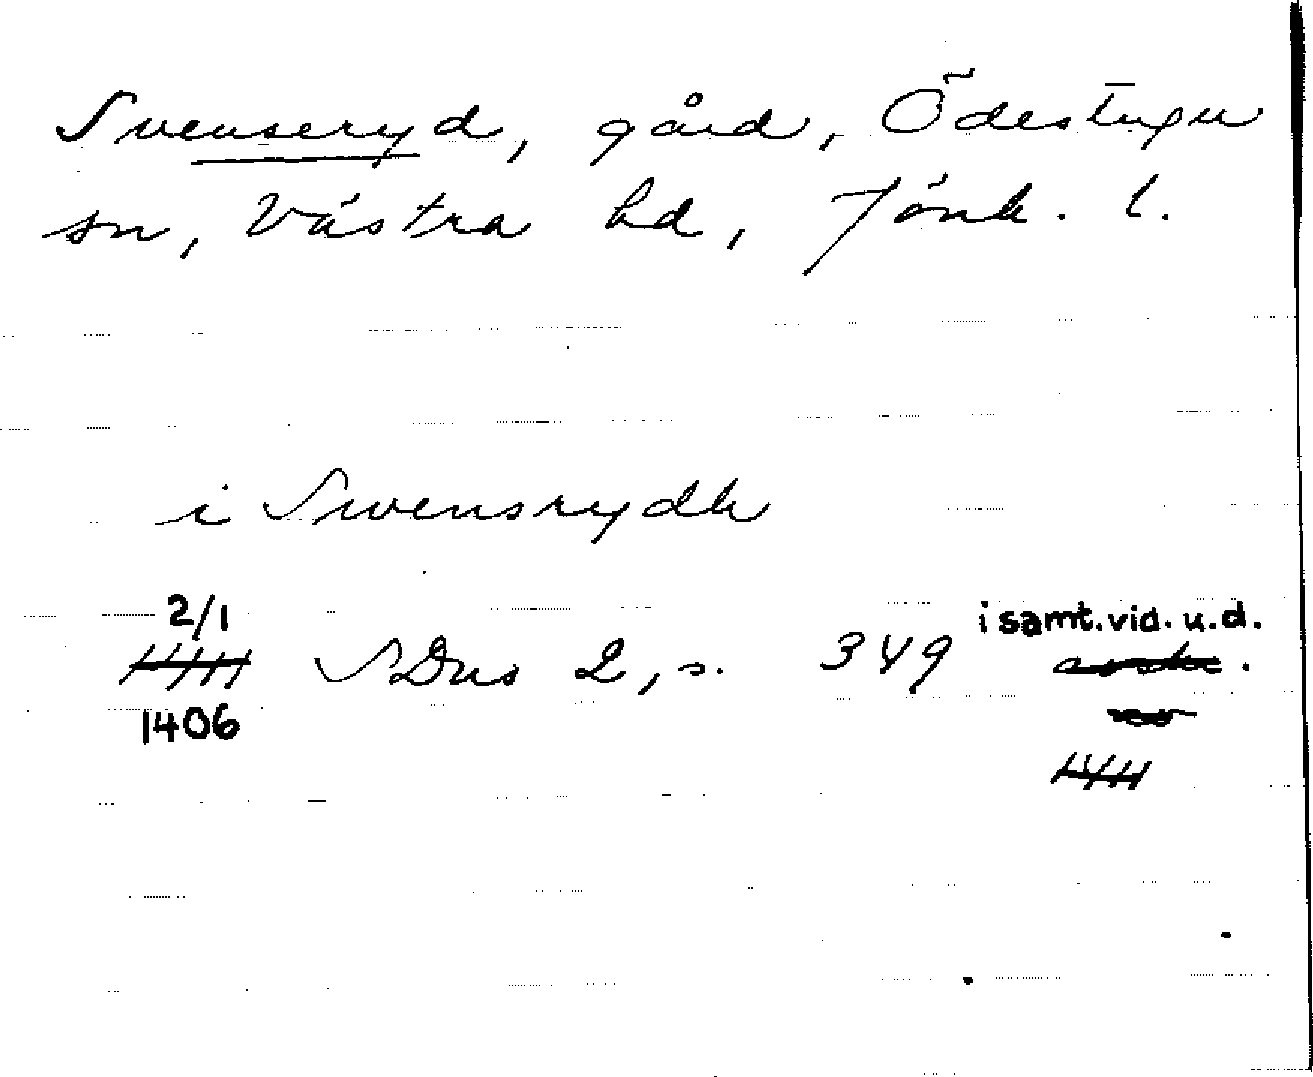 Svenseryd, gård, Ödestugu
sn, Västra hd, Jönk. l.
i Swensrydh
2/1
1406
SDns 2, s. 349 i samt.vid. u.d.